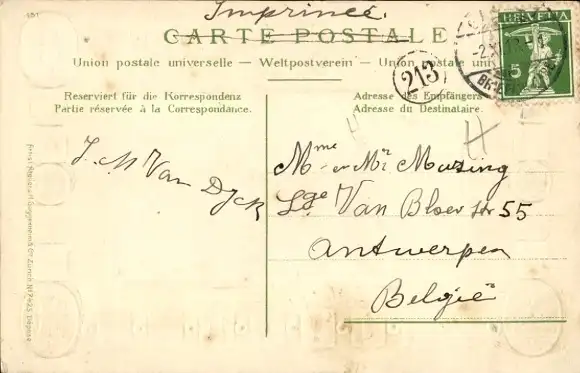 151
Imprimée.
CARTE POSTALE
Union postale universelle — Weltpostverein — Union postale uni
HELVETIA
5
213
Reserviert für die Korrespondenz
Partie réservée à la Correspondance.
Adresse des Empfängers
Adresse du Destinataire.
H H
J. M Van Dyck
Mme et Mr Musing
Lge Van Bloer str 55
Antwerpen
België